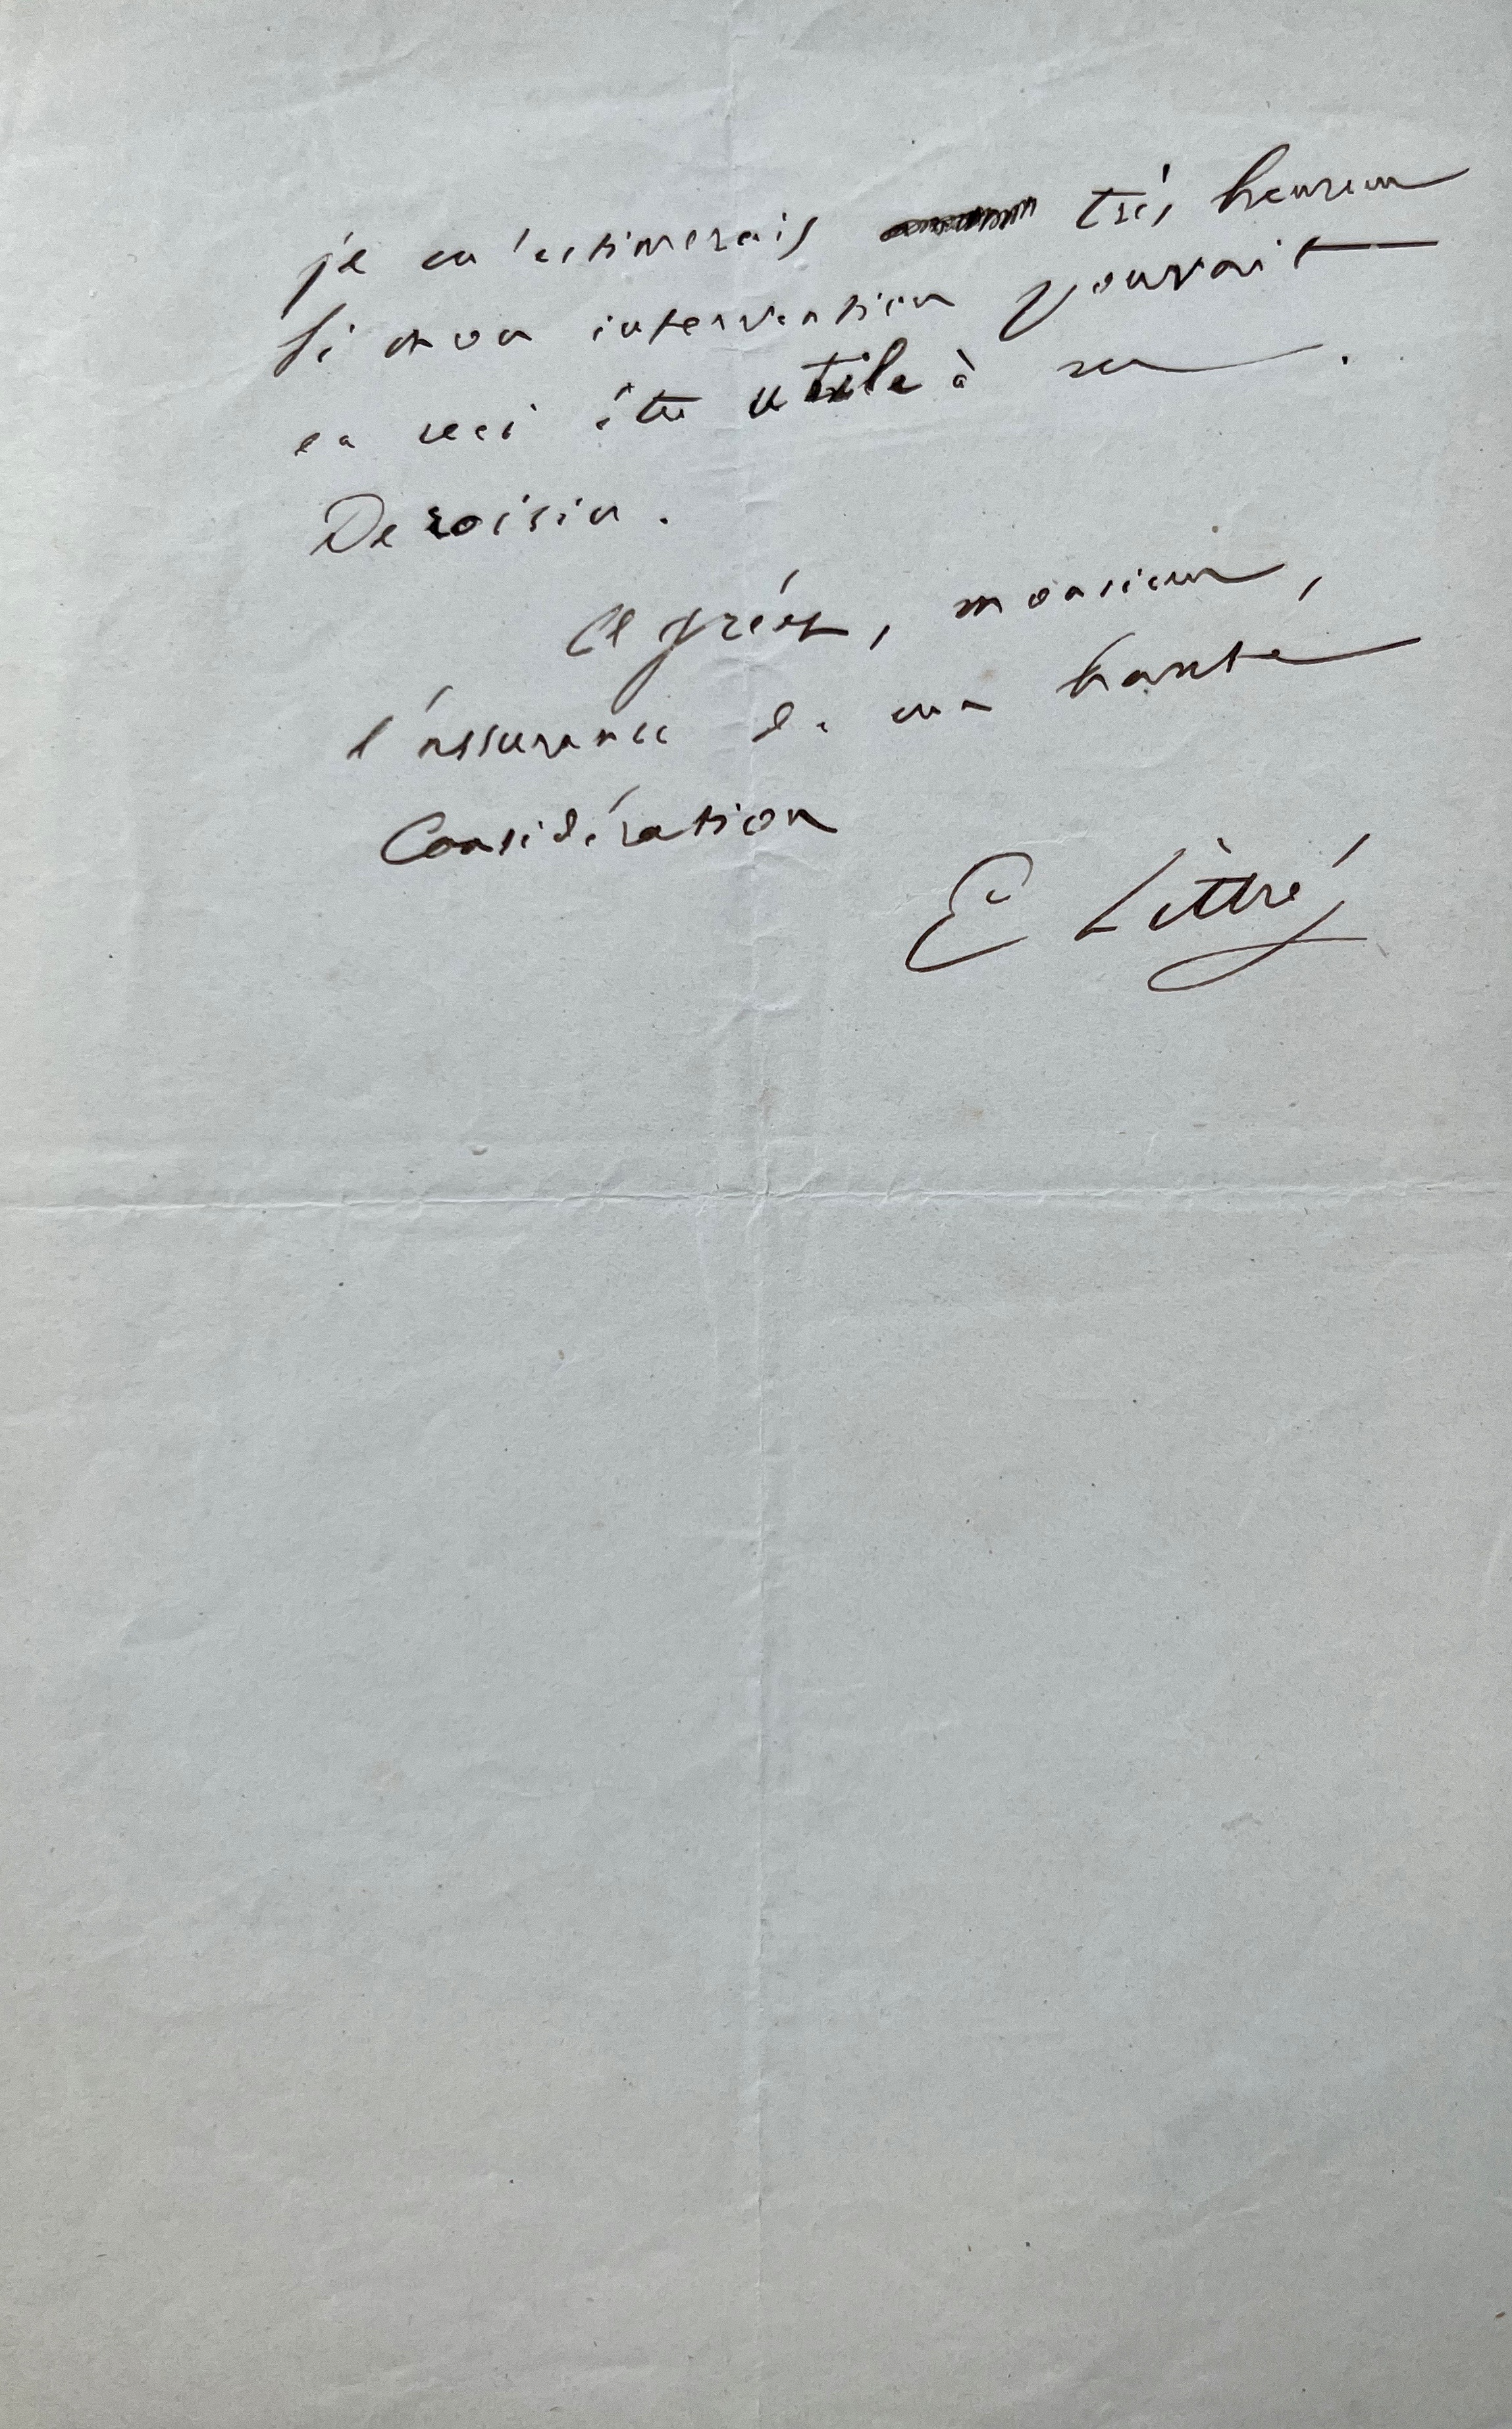 je m'estimerais très heureux
si mon intervention pouvait
en ceci être utile à m.
Deroisin.
Agréez, monsieur,
l'assurance de ma haute
Considération
E Littré